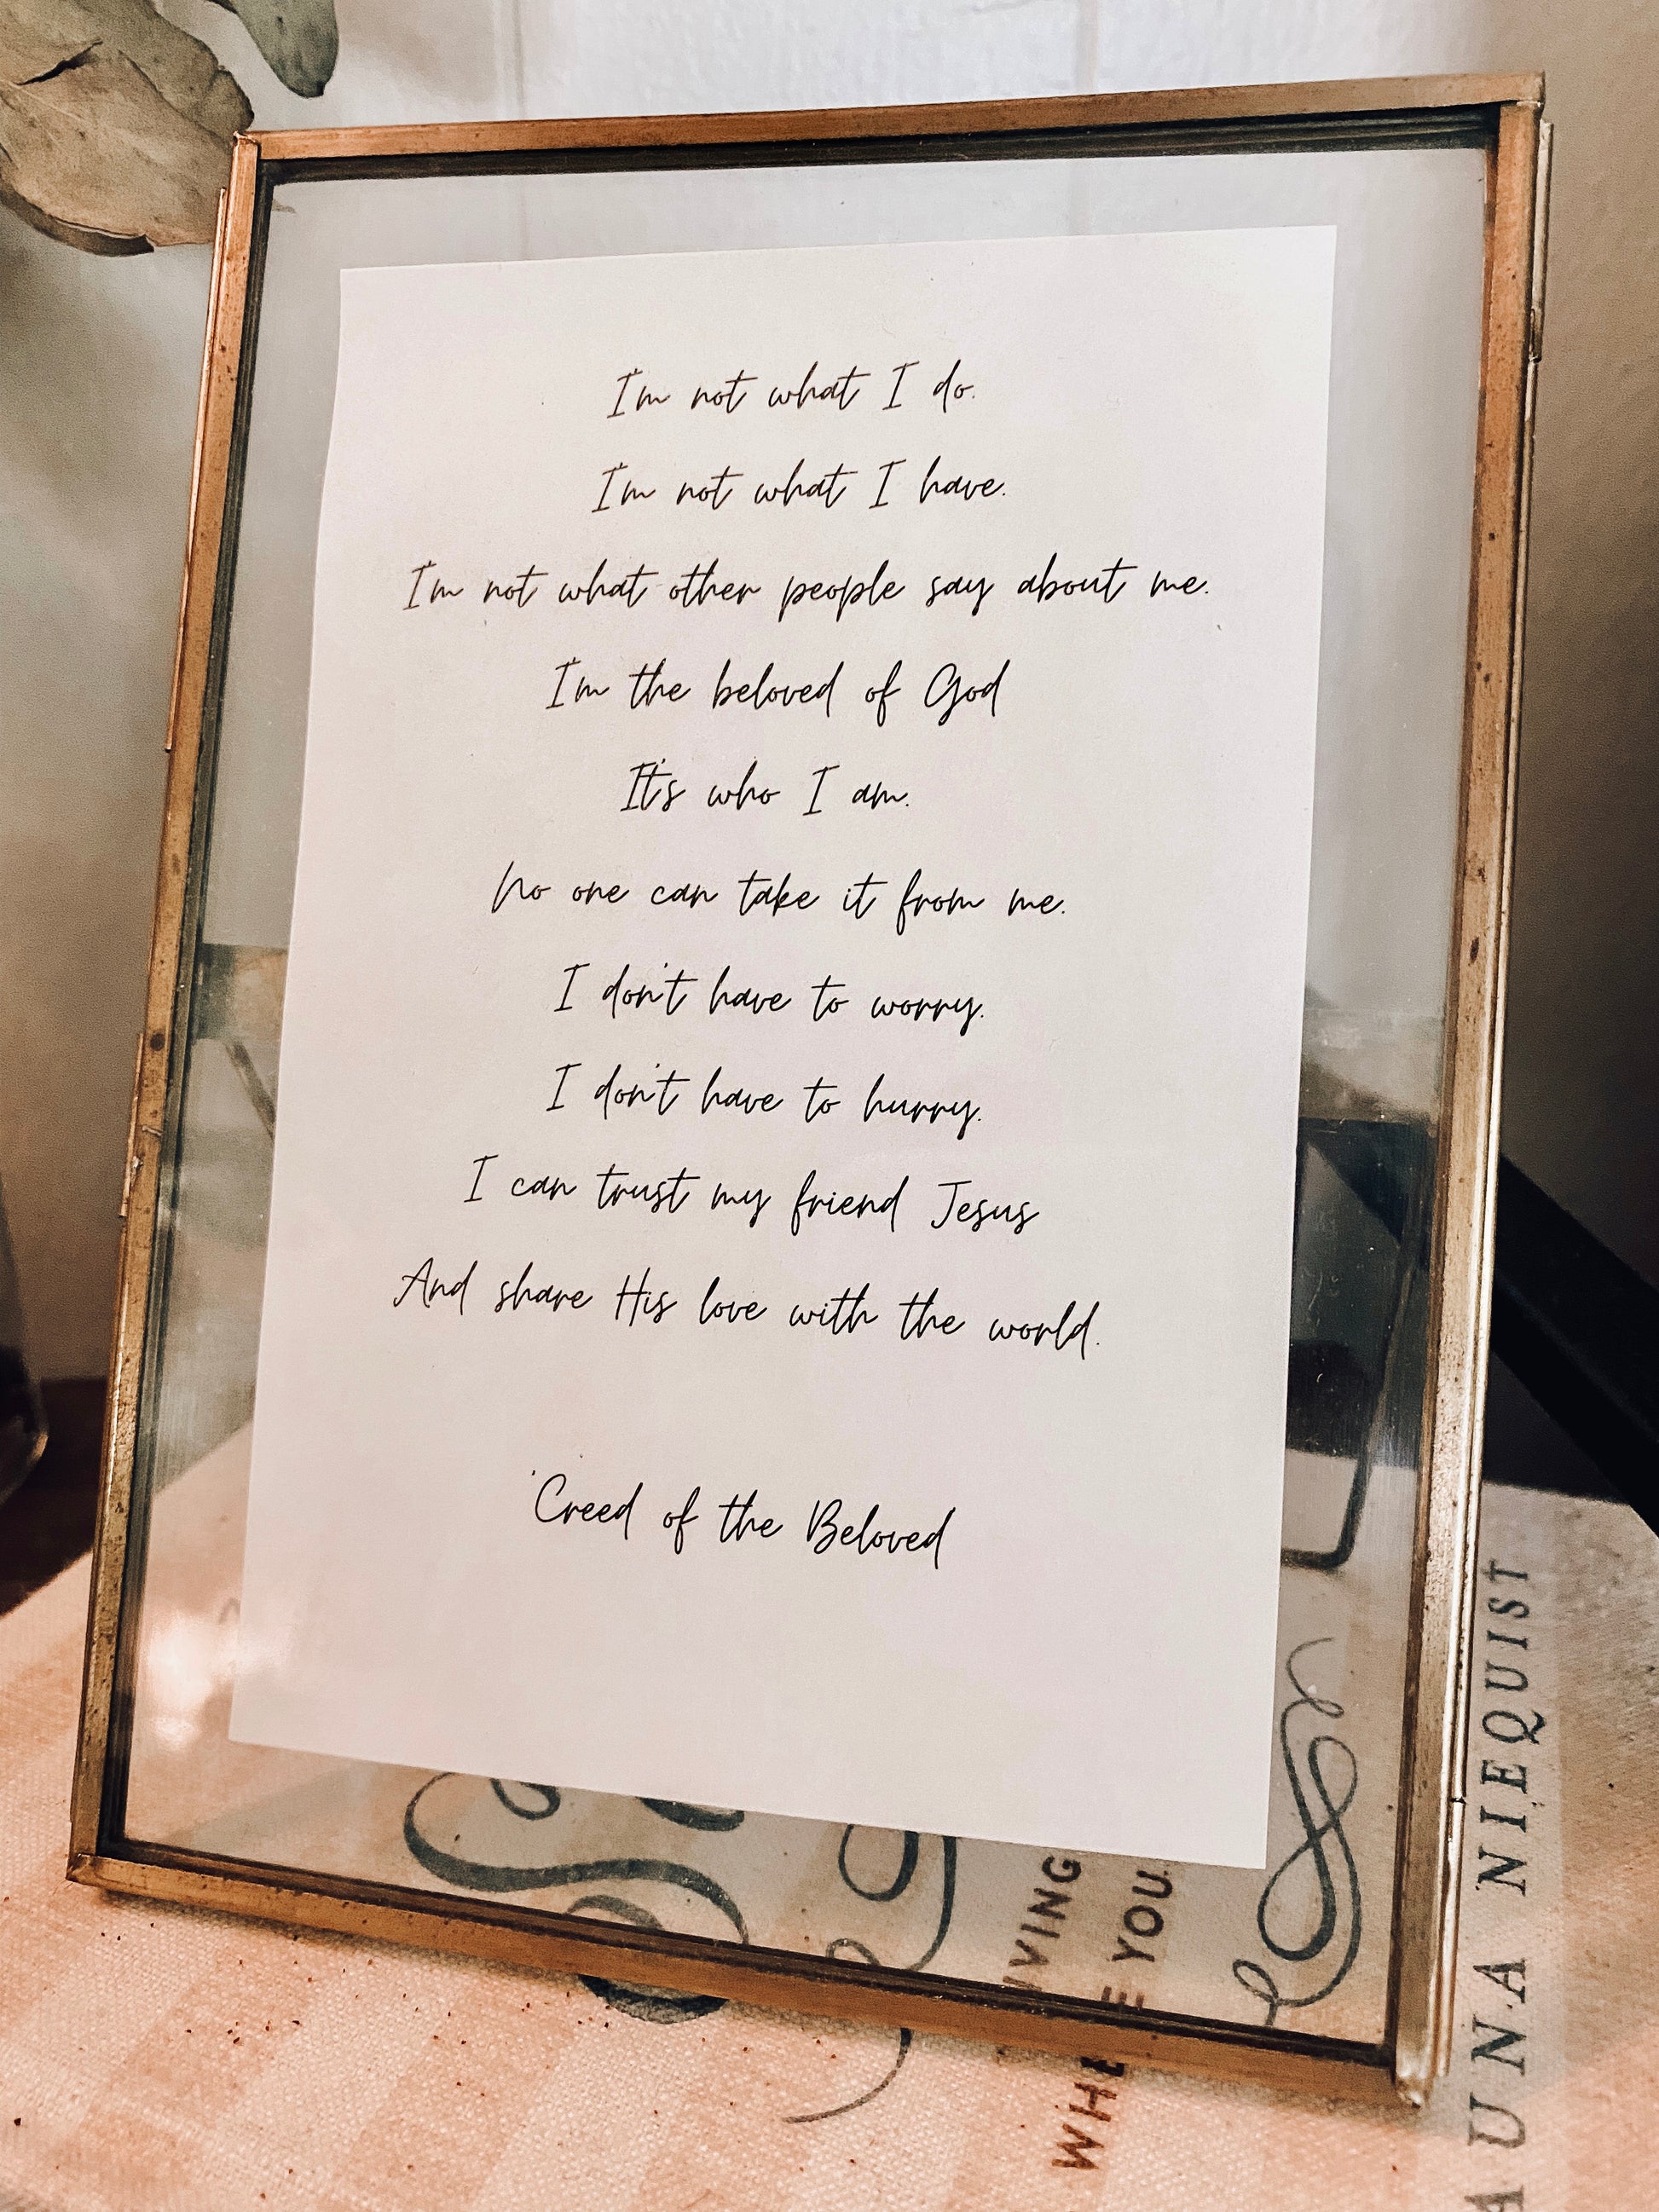 I'm not what I do.
I'm not what I have.
I'm not what other people say about me.
I'm the beloved of God
It's who I am.
No one can take it from me.
I don't have to worry.
I don't have to hurry.
I can trust my friend Jesus
And share His love with the world.
Creed of the Beloved
YOU.
AUNA NIEQUIST